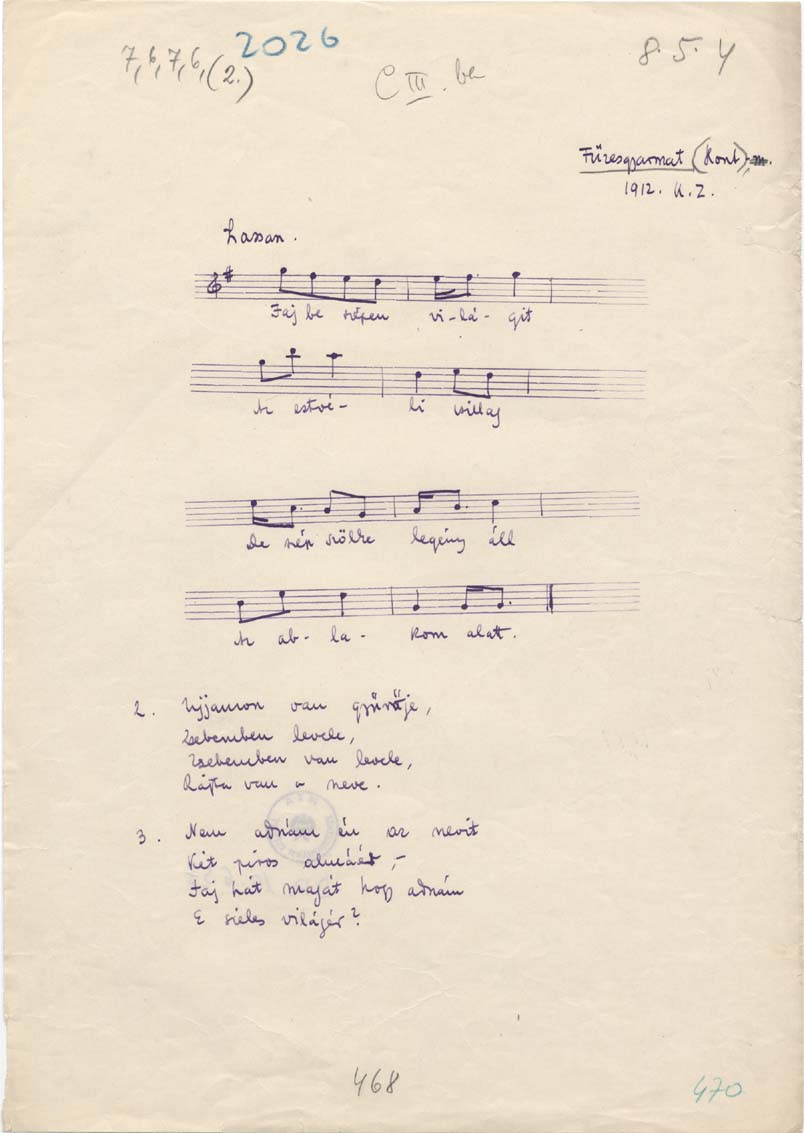 7, 6, 7, 6, (2.)
2026
C III. be
8. 5. 4
Füzesgyarmat (Kont)
1912. K. Z.
Lassan.
Faj be szépen vi-lá-git
Az estvé- li csillag
De szép szőke legény áll
Az ab-la- kom alatt.
2. Ujjamon van gyürüje,
Zsebemben levele,
Zsebemben van levele,
Rájta van a neve.
3. Nem adnám én az nevit
Két piros almáér,-
Faj hát maját hogy adnám
E széles világér?
468
470